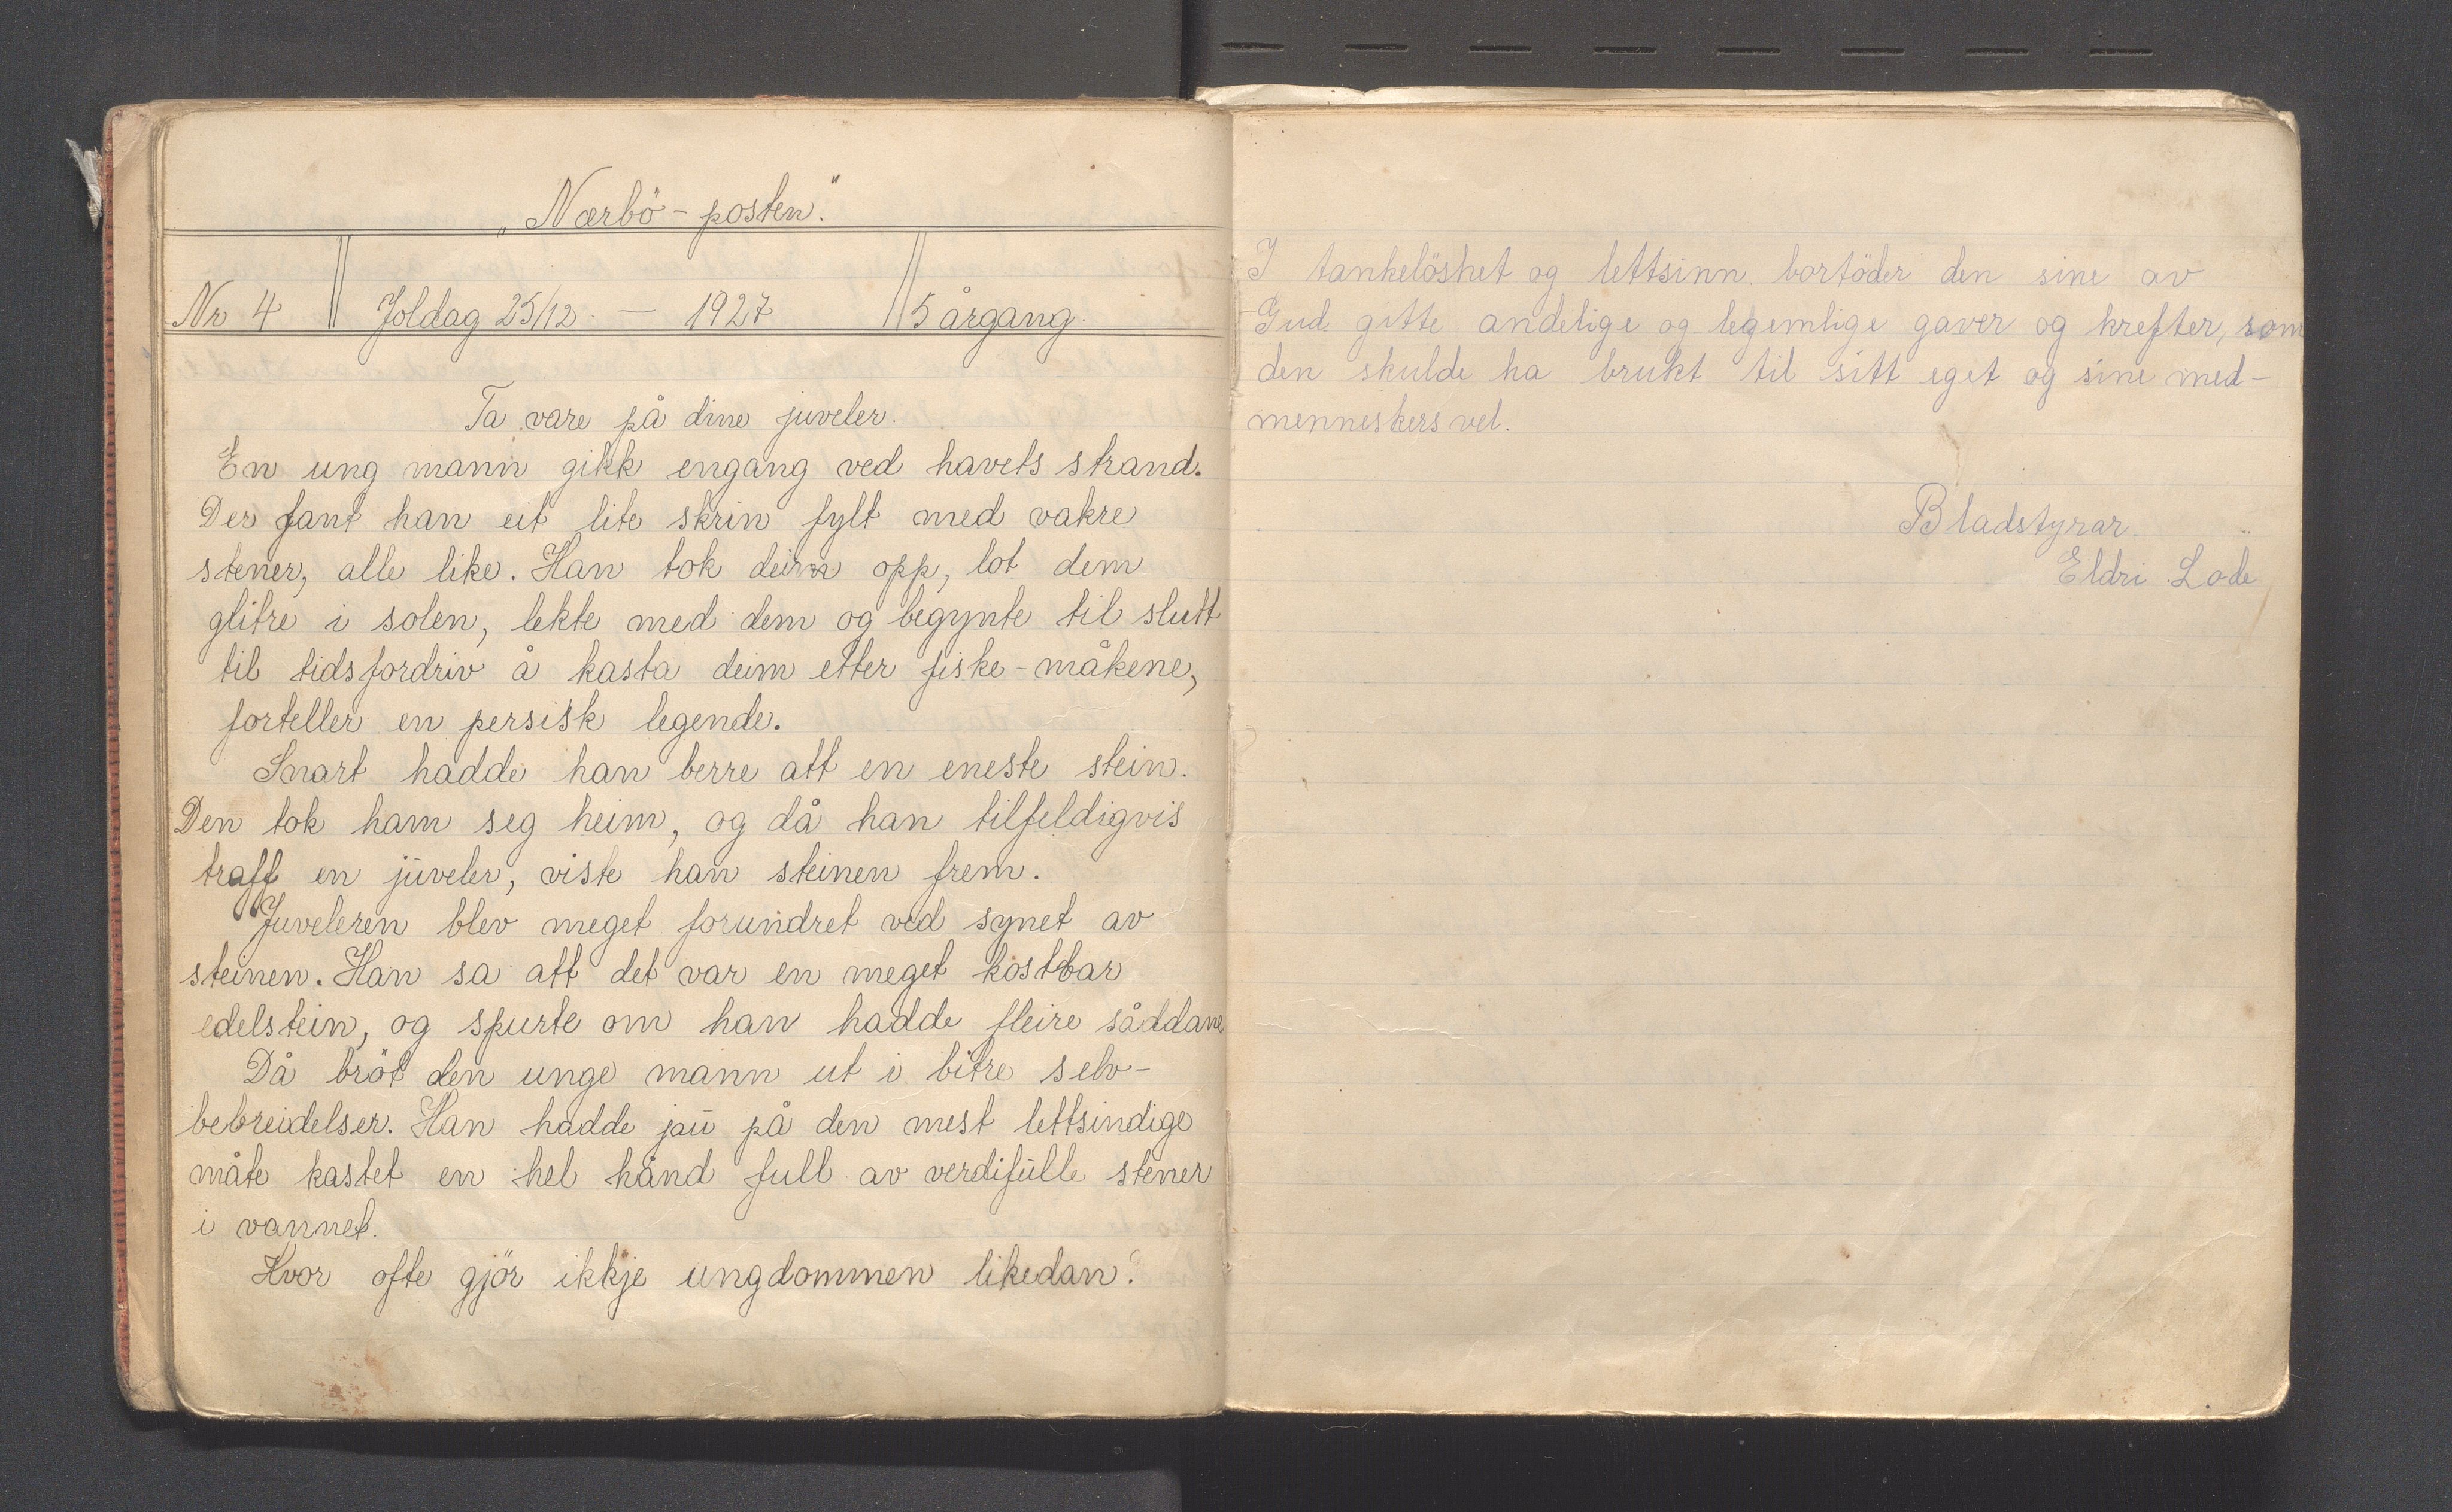 „Nærbö-posten."
Nr 4 Joldag 25/12 — 1927 5 årgang.
Ta vare på dine juveler.
En ung mann gikk engang ved havets strand.
Der fant han eit lite skrin fylt med vakre
stener, alle like. Han tok deim opp, lot dem
glitre i solen, lekte med dem og begynte til slutt
til tidsfordriv å kasta deim etter fiske-måkene,
forteller en persisk legende.
Snart hadde han berre att en eneste stein.
Den tok ham seg heim, og då han tilfeldigvis
traff en juveler, viste han steinen frem.
Juveleren blev meget forundret ved synet av
steinen. Han sa att det var en meget kostbar
edelstein, og spurte om han hadde fleire såddane
Då bröt den unge mann ut i bitre selv-
bebreidelser. Han hadde jau på den mest lettsindige
måte kastet en hel hånd full av verdifulle stener
i vannet.
Hvor ofte gjör ikkje ungdommen likedan?
I tankelöshet og lettsinn bortöder den sine av
Gud gitte andelige og legemlige gaver og krefter, som
den skulde ha brukt til sitt eget og sine med-
menneskers vel.
Bladstyrar.
Eldri Lode